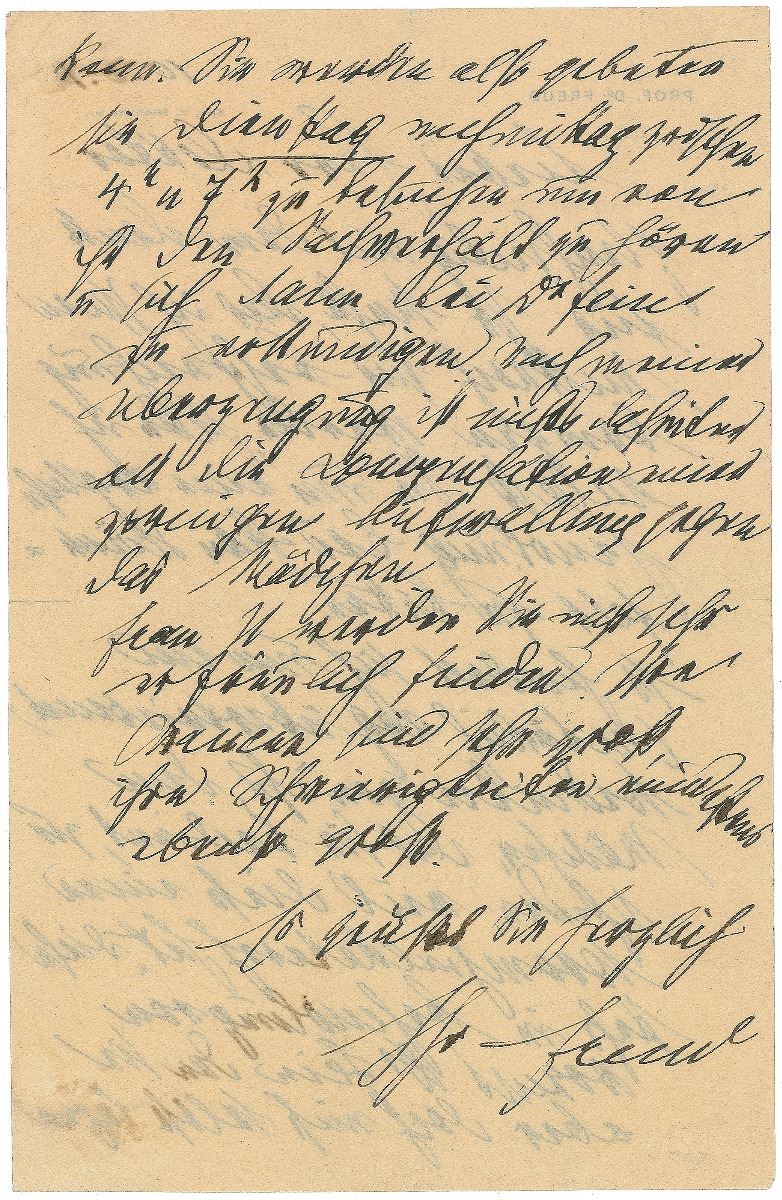 kann. Sie werden also gebeten
sie Dienstag nachmittag zwischen
4h u 7h zu besuchen um von
ihr den Sachverhalt zu hören
u sich dann bei Dr
zu erkundigen. Nach meiner
Überzeugung ist nichts dahinter
als die Compensation einer
zornigen Aufwallung gegen
das Mädchen
Frau werden Sie nicht sehr
erfreulich finden. Ihre
sind sehr groß
ihre Schwierigkeiten mindestens
ebenso groß.
Es grüßt Sie herzlich
Ihr Freud
PROF. Dr. FREUD